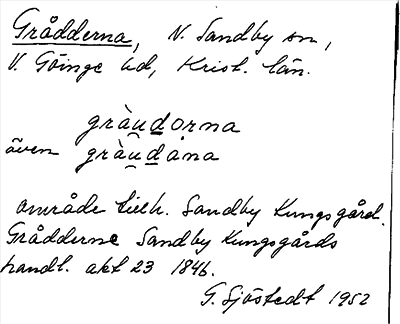 Grådderna, N. Sandby sn,
V. Göinge hd, Krist. län.
gràu̯dorna
även gràu̯dåna
område tillh. Sandby Kungsgård.
Grådderne Sandby Kungsgårds
handl. akt 23 1846.
G. Sjöstedt 1952